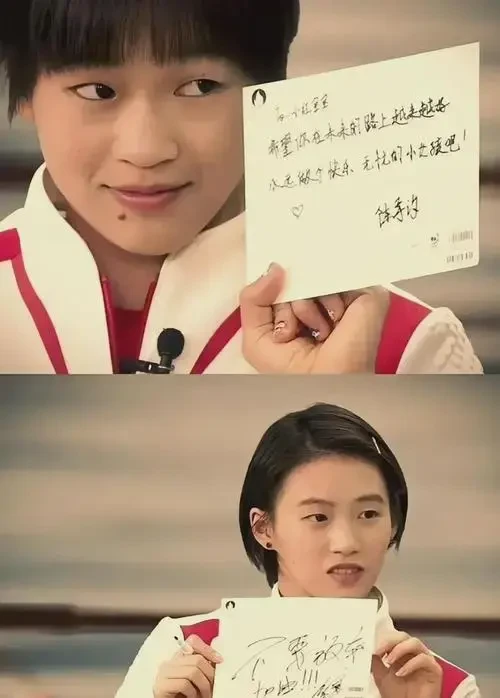 宝宝
希望你在未来的路上越来越好
永远做个快乐 无忧的小女孩吧!
♡
陈芋汐
不要放弃
加油!!!